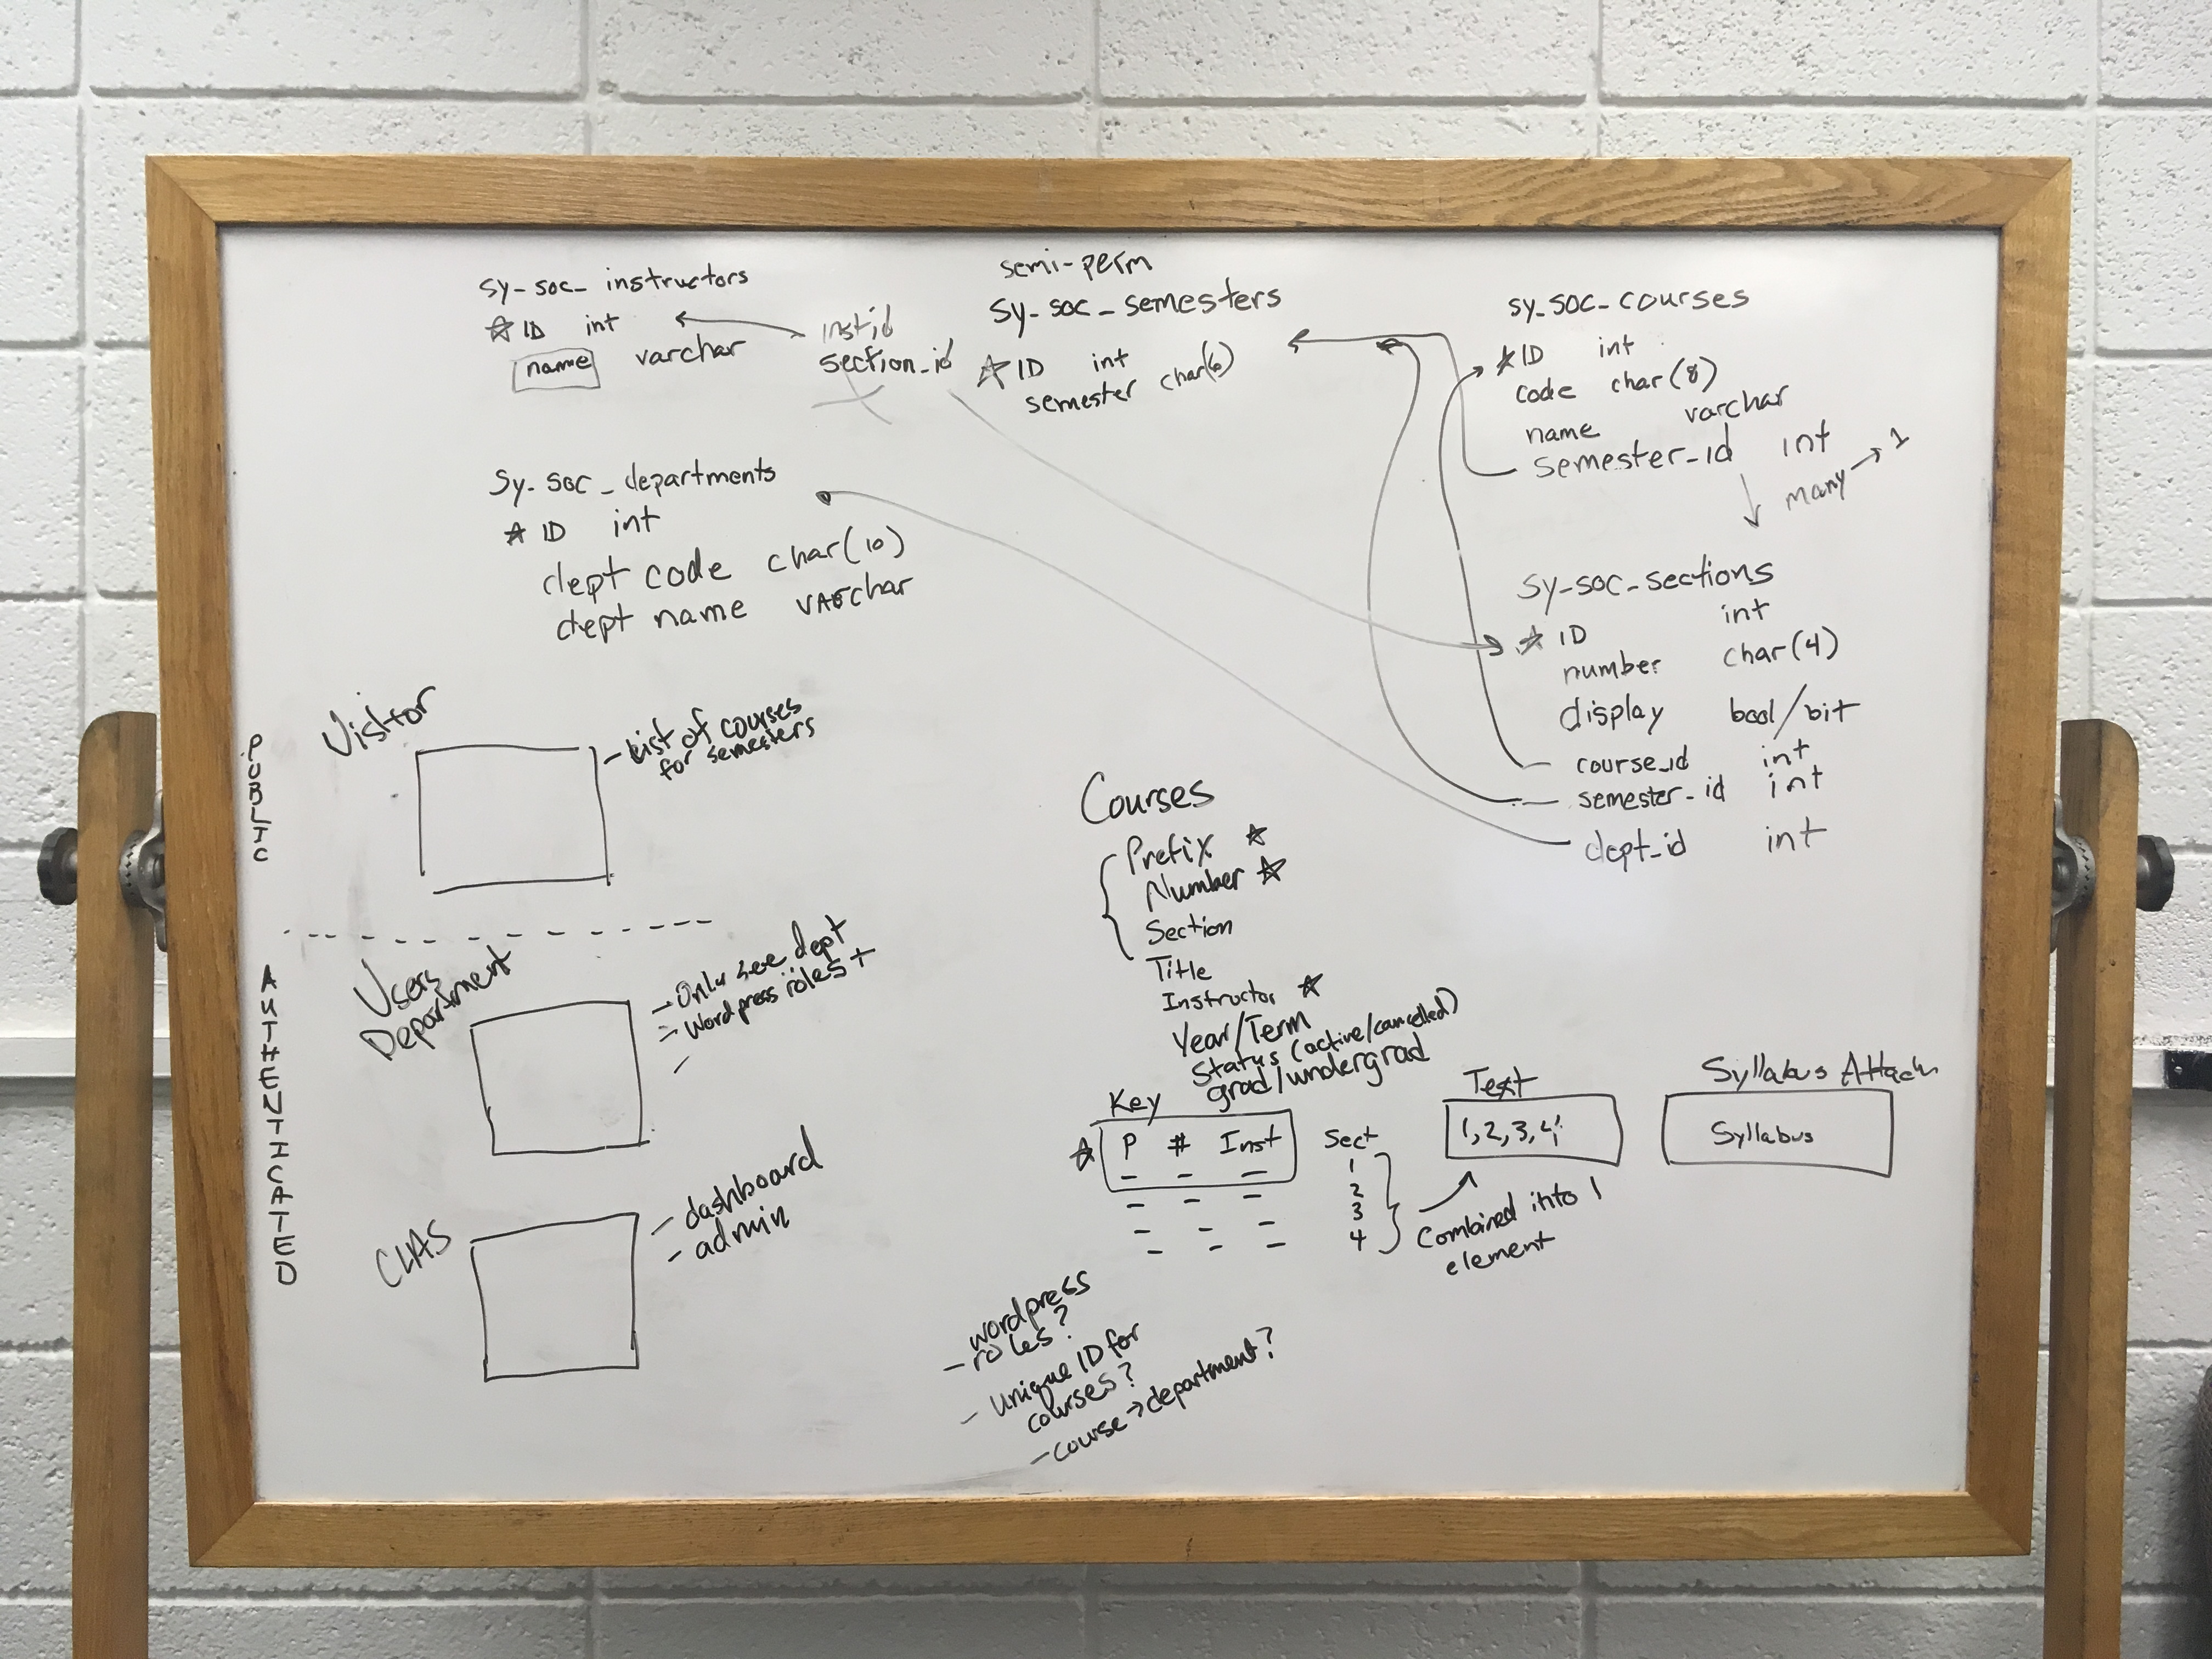 sy_soc_instructors
☆ ID int
name varchar
inst_id
section_id
semi-perm
sy_soc_semesters
☆ ID int
semester char(6)
sy_soc_courses
☆ ID int
code char(8)
name varchar
semester_id int
many → 1
sy_soc_departments
☆ ID int
dept code char(10)
dept name varchar
sy_soc_sections
☆ ID int
number char(4)
display bool/bit
course_id int
semester_id int
dept_id int
PUBLIC
Visitor
- List of courses
for semesters
AUTHENTICATED
Users
Department
- Only see dept
- Wordpress roles +
CLAS
- dashboard
- admin
Courses
Prefix ☆
Number ☆
Section
Title
Instructor ☆
Year/Term
Status (active/cancelled)
grad/undergrad
Key
☆ P # Inst
Sect
1
2
3
4
Text
1,2,3,4
Combined into 1
element
Syllabus Attach
Syllabus
wordpress
- roles?
- unique ID for
courses?
- course → department?